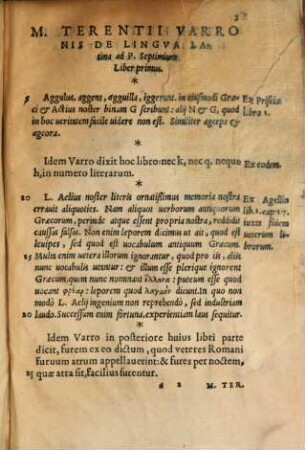 3
M. TERENTII VARRO
NIS DE LINGVA LA
tina ad P. Septimium
Liber primus.
*
5 Aggulus, aggens, agguilla, iggerunt. in eiusmodi Græ- Ex Priscia.
ci & Actius noster binam G scribunt: alij N & G, quod libro 1.
in hoc ueritatem facile uidere non est. Similiter agceps &
agcora.
*
Idem Varro dixit hoc libro neck, nec q, nequo Ex eodem.
h, in numero literarum.
*
20 L. Aelius noster literis ornatissimus memoria nostra Ex Agellio
errauit aliquoties. Nam aliquot uerborum antiquorum lib. 1. cap. 17.
Græcorum, perinde atque essent propria nostra, reddidit iuxta fidem
caussas falsas. Non enim leporem dicimus ut ait, quod est ueterum li-
leuipes, sed quod est uocabulum antiquum Græcum. brorum.
25 Multa enim uetera illorum ignorantur, quod pro iis, aliis
nunc uocabulis utuntur: & illum esse plerique ignorent
Græcum, quem nunc nominant ἕλληνα: puteum esse quod
uocant φρέαρ: leporem quod λαγωὸν dicunt. In quo non
modo L. Aelij ingenium non reprehendo, sed industriam
30 laudo. Successum enim fortuna, experientiam laus sequitur.
*
Idem Varro in posteriore huius libri parte
dicit, furem ex eo dictum, quod veteres Romani
furuum atrum appellauerint: & fures per noctem,
35 quæ atra sit, facilius furentur.
a 2 M. TER.